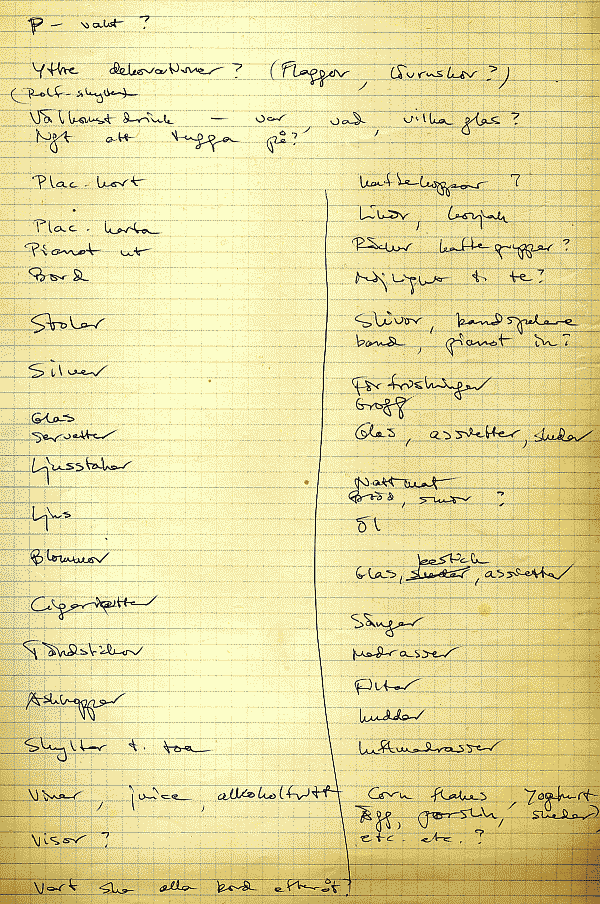 P - vakt?
Yttre dekorationer? (Flaggor, lövruskor?)
(Rolf-skyltar
Välkomstdrink - var, vad, vilka glas?
Ngt att tugga på?
Plac. kort
Plac. karta
Pianot ut
Bord
Stolar
Silver
Glas
Servetter
Ljusstakar
Ljus
Blommor
Cigaretter
Tändstickor
Askkoppar
Skyltar t. toa
Viner, juice, alkoholfritt
Visor?
Vart ska alla bord efteråt?
Kaffekoppar?
Likör, konjak
Räcker kaffegrupper?
Möjlighet t. te?
Skivor, bandspelare
band, pianot in?
Förfriskningar
Grogg
Glas, assietter, skedar
Nattmat
Bröd, smör?
Öl
bestick
Glas, skedar, assietter
Sängar
Madrasser
Filtar
kuddar
luftmadrasser
Corn flakes, Yoghurt
Ägg, porslin, skedar,
etc. etc.?